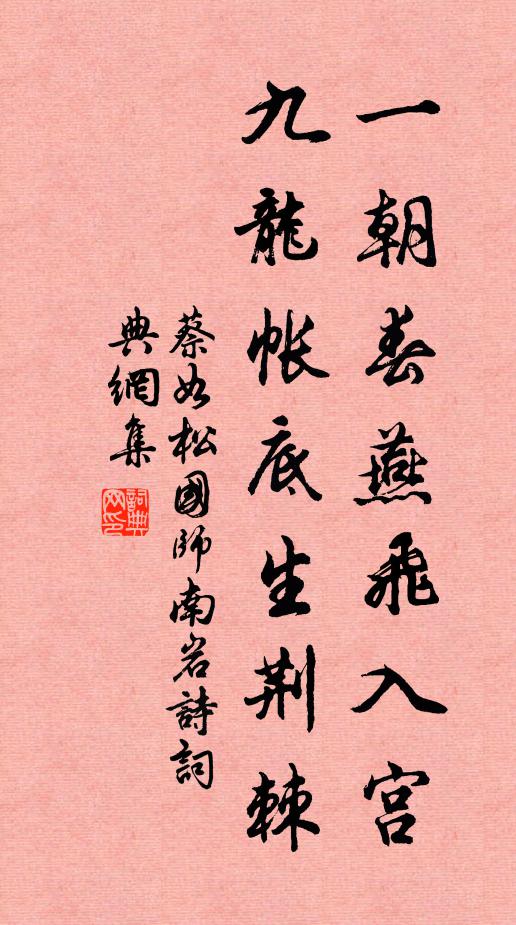 一朝春燕飛入宮
九龍帳底生荆棘
蔡如松國師南岩詩詞
典網集
詞典網印